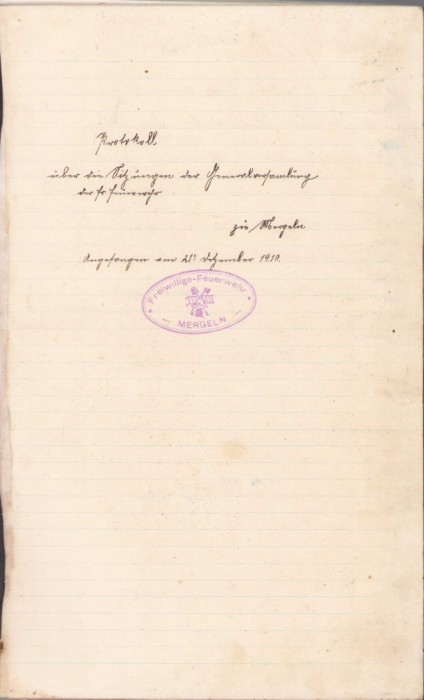 Protokoll
über die Sitzungen der Generalversamlung
der fr Feuerwehr
zu Mergeln
Angefangen am 21t Dezember 1910.
Freiwillige-Feuerwehr
MERGELN